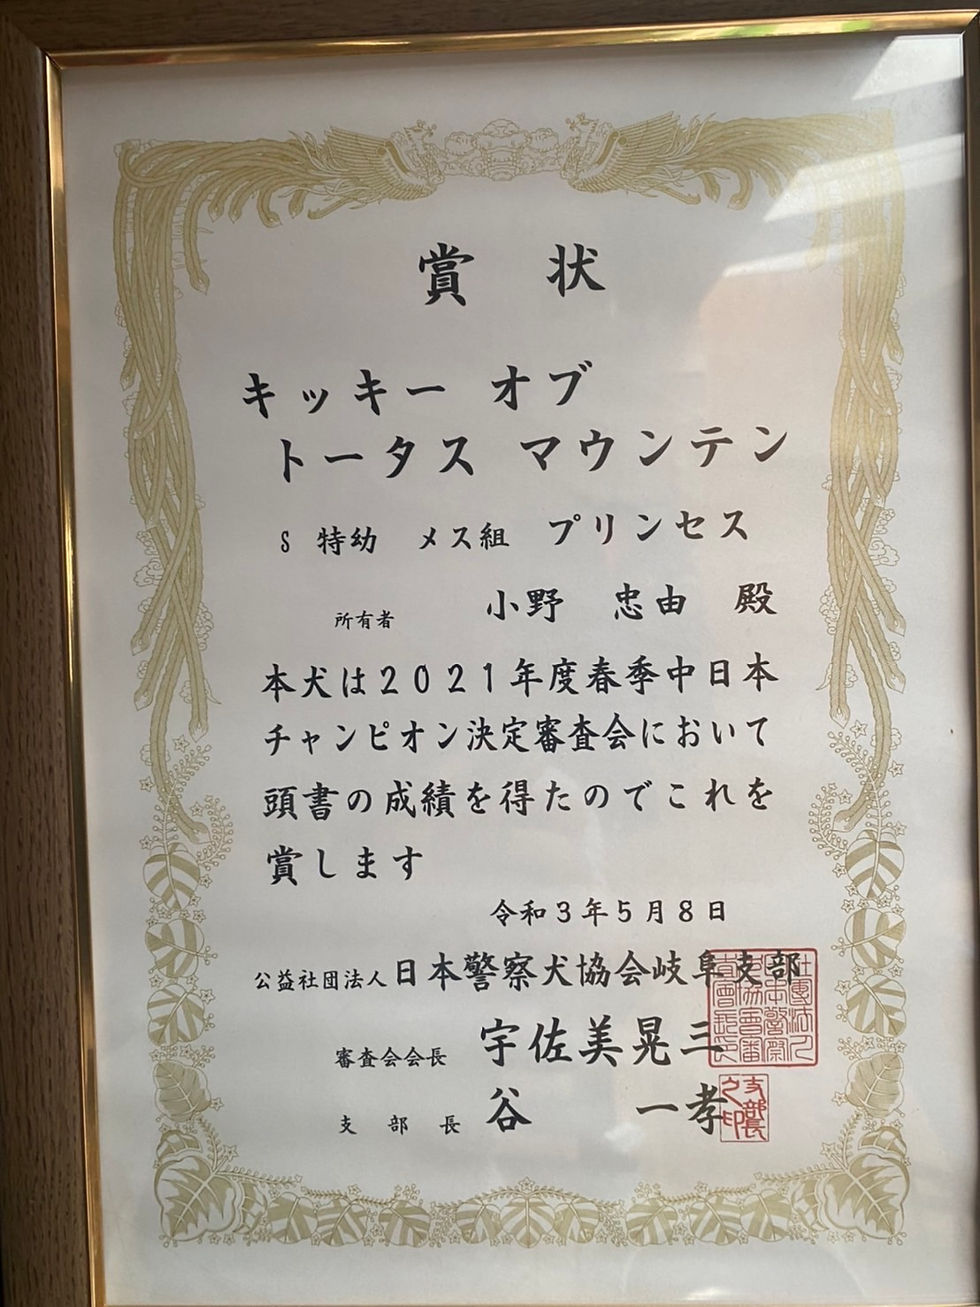 賞 状
キッキー オブ
トータス マウンテン
S 特幼 メス組 プリンセス
所有者 小野 忠由 殿
本犬は2021年度春季中日本
チャンピオン決定審査会において
頭書の成績を得たのでこれを
賞します
令和3年5月8日
公益社団法人日本警察犬協会岐阜支部
審査会会長 宇佐美晃三
支部長 谷 一孝
支部長之印